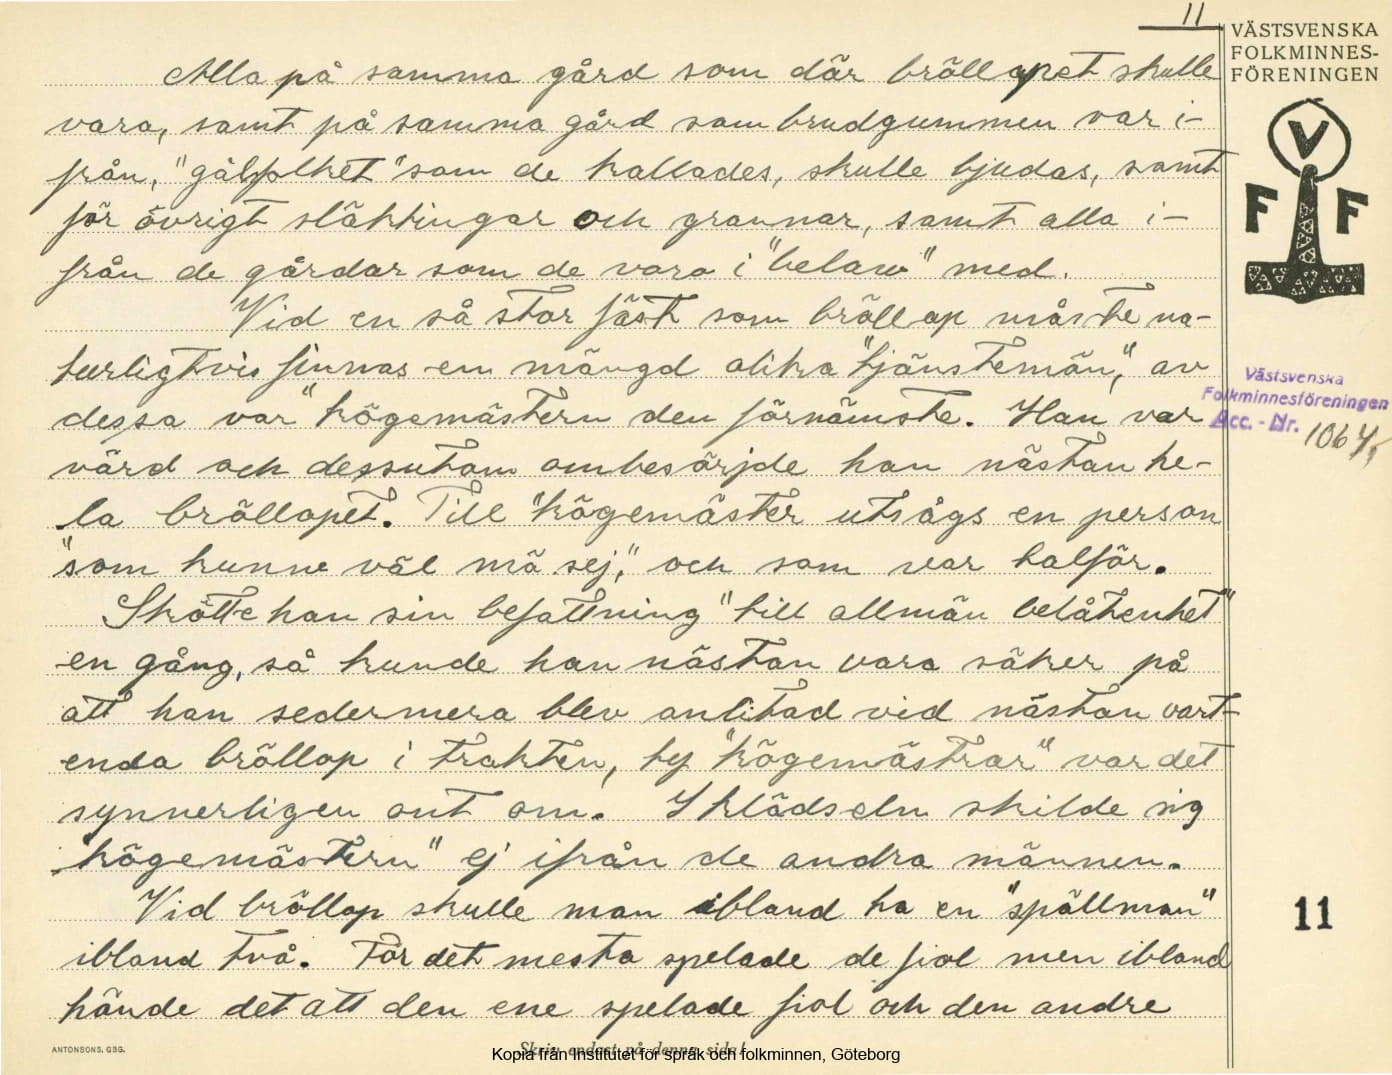 11
VÄSTSVENSKA
FOLKMINNES-
FÖRENINGEN
Alla på samma gård som där bröllopet skulle
vara, samt på samma gård som brudgummen var i-
från, "gålfolket" som de kallades, skulle bjudas, samt
för övrigt släktingar och grannar, samt alla i-
från de gårdar som de vara i "belaw" med.
Vid en så stor fäst som bröllop måste na-
turligtvis finnas en mängd olika "tjänstemän", av
dessa var "kögemästern den förnämste. Han var
värd och dessutom ombesörjde han nästan he-
la bröllopet. Till "kögemäster utsågs en person
"som kunne väl mä sej," och som var talför.
Skötte han sin befattning "till allmän belåtenhet"
en gång, så kunde han nästan vara säker på
att han sedermera blev anlitad vid nästan vart-
enda bröllop i trakten, ty "kögemästrar" var det
synnerligen ont om. I klädseln skilde sig
"kögemästern" ej ifrån de andra männen.
Vid bröllop skulle man ibland ha en "spällman"
ibland två. För det mesta spelade de fiol men ibland
hände det att den ene spelade fiol och den andre
V
F F
Västsvenska
Folkminnesföreningen
Acc. - Nr. 1067,
11
ANTONSONS. GBG.
Skriv endast på denna sida!
Kopia från Institutet för språk och folkminnen, Göteborg